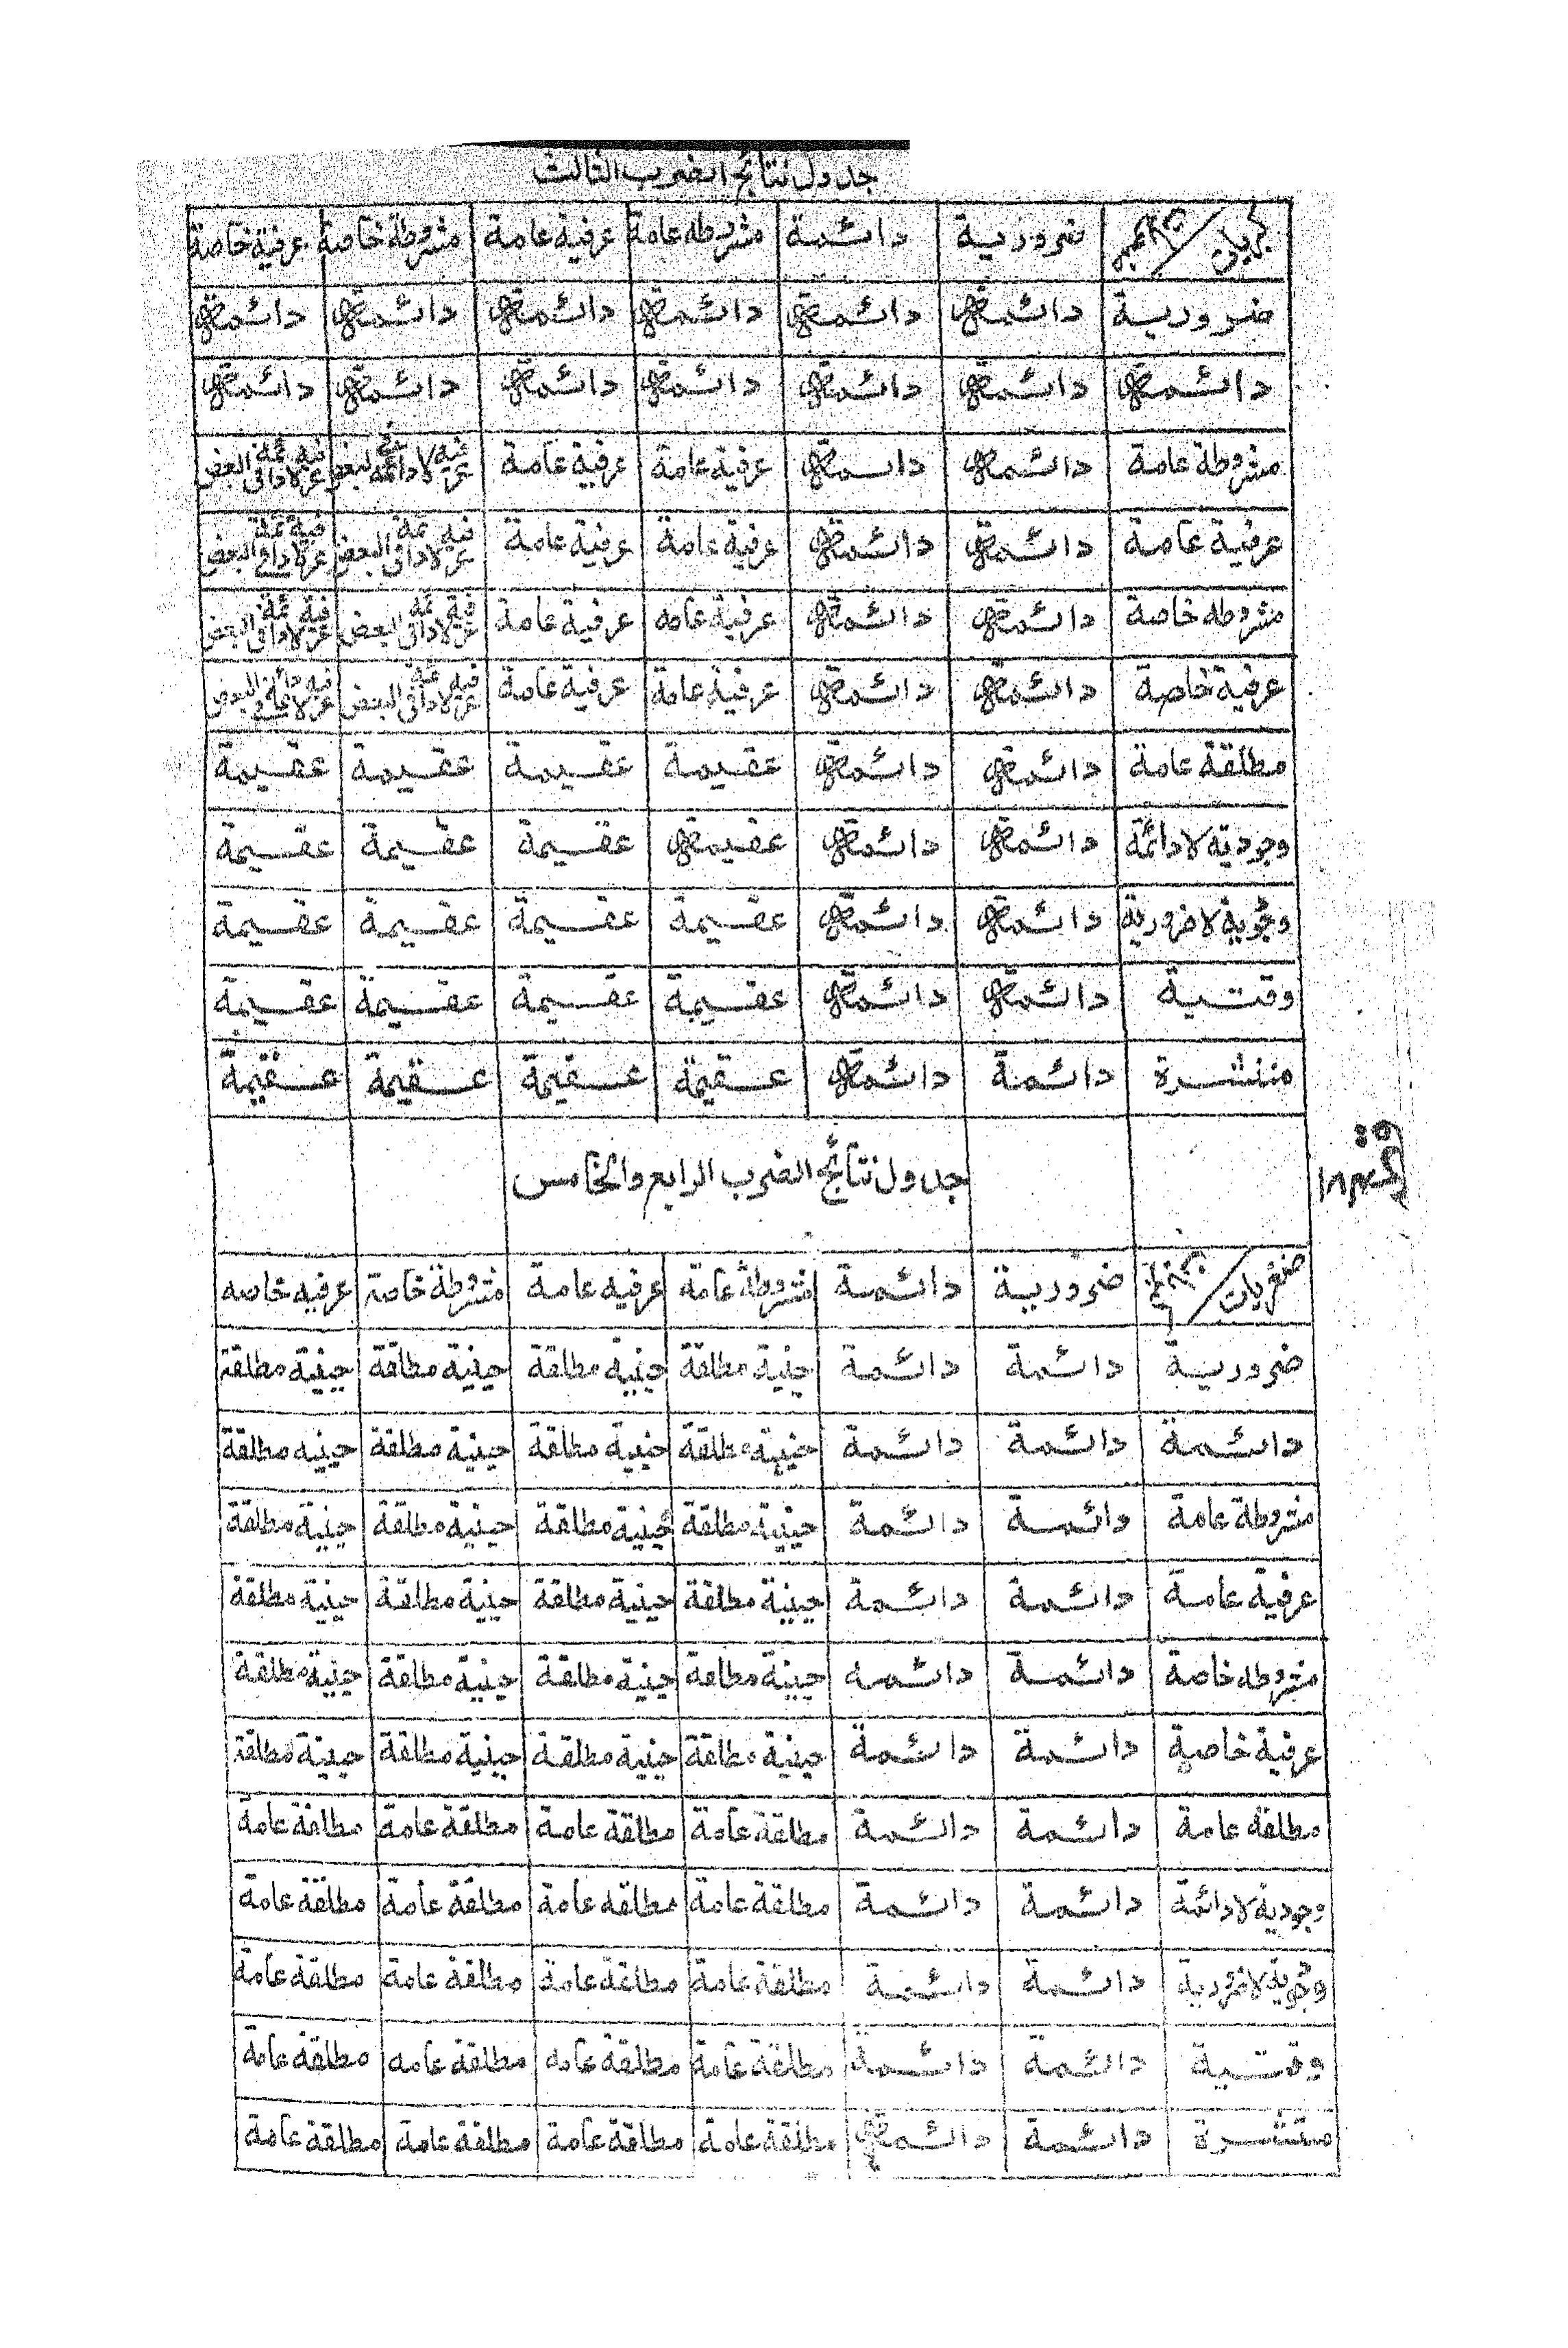 جدول نتائج الضرب الثالث
ضرورية دائمة مشروطه عامة عرفية عامة مشروطة خاصة عرفية خاصة
ضرورية دائمة دائمة دائمة دائمة دائمة دائمة
دائمة دائمة دائمة دائمة دائمة دائمة دائمة
مشروطة عامة دائمة دائمة عرفية عامة عرفية عامة
عرفية عامة دائمة دائمة عرفية عامة عرفية عامة عرفية عامة لا دائمة في البعض عرفية عامة لا دائمة في البعض
مشروطه خاصة دائمة دائمة عرفية عامه عرفية عامة عرفية عامة لا دائمة في البعض عرفية عامة لا دائمة في البعض
عرفية خاصة دائمة دائمة عرفية عامة عرفيه عامة
مطلقة عامة دائمة دائمة عقيمة عقيمة عقيمة عقيمة
وجودية لا دائمة دائمة دائمة عقيمة عقيمة عقيمة عقيمة
وجودية لا ضرورية دائمة دائمة عقيمة عقيمة عقيمة عقيمة
وقتية دائمة دائمة عقيمة عقيمة عقيمة عقيمة
منتشرة دائمة دائمة عقيمة عقيمة عقيمة عقيمة
جدول نتائج الضرب الرابع والخامس
صغريات ضرورية دائمة مشروطة عامة عرفيه عامة مشروطة خاصة عرفيه خاصه
ضرورية دائمة دائمة حينية مطلقة حينية مطلقة حينية مطلقة حينية مطلقة
دائمة دائمة دائمة حينية مطلقة حينية مطلقة حينية مطلقة حينيه مطلقة
مشروطة عامة دائمة دائمة حينية مطلقة حينية مطلقة حينية مطلقة حينية مطلقة
عرفية عامة دائمة دائمة حينية مطلقة حينية مطلقة حينية مطلقة حينية مطلقة
مشروطه خاصة دائمة دائمه حينية مطلقة حينية مطلقة حينية مطلقة حينية مطلقة
عرفية خاصة دائمة دائمة حينية مطلقة حينية مطلقة حينية مطلقة حينية مطلقة
مطلقة عامة دائمة دائمة مطلقة عامة مطلقة عامة مطلقة عامة مطلقة عامة
وجودية لا دائمة دائمة دائمة مطلقة عامة مطلقه عامة مطلقة عامة مطلقة عامة
وجودية لا ضرورية دائمة دائمة مطلقة عامة مطلقة عامة مطلقة عامة مطلقة عامة
وقتية دائمة دائمة مطلقة عامة مطلقة عامه مطلقة عامه مطلقة عامة
منتشرة دائمة دائمة مطلقة عامة مطلقة عامة مطلقة عامة مطلقة عامة